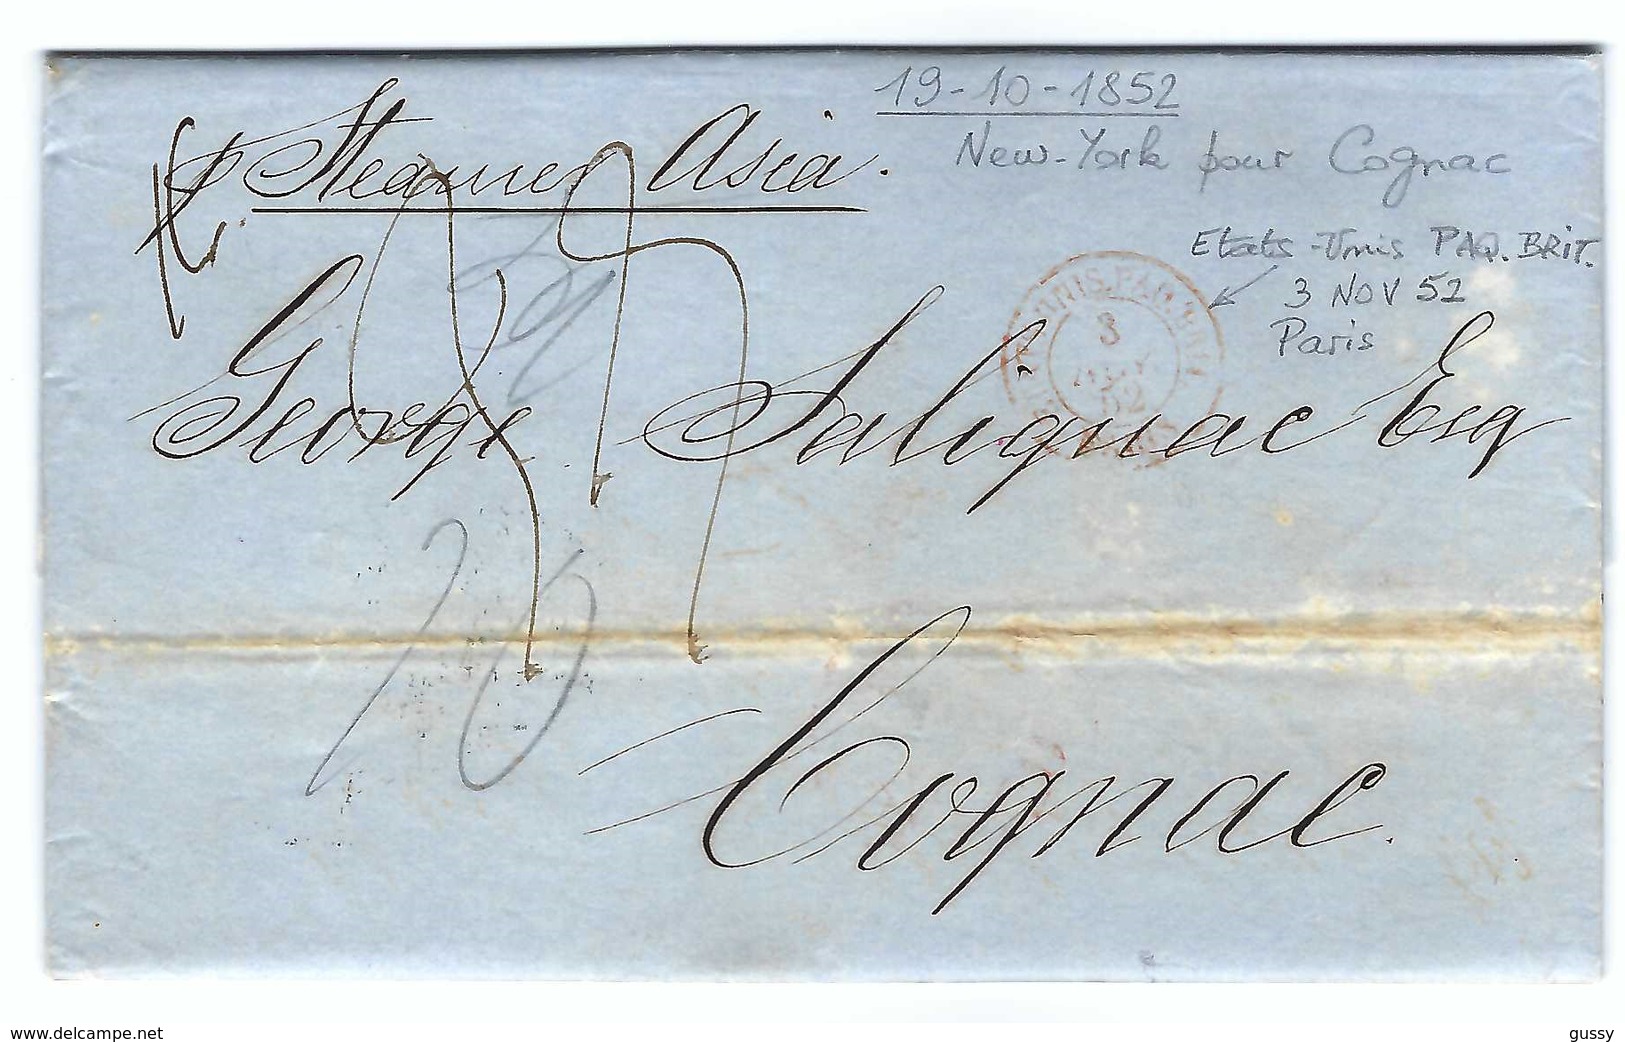 19-10-1852
p Steamer Asia.
New-York pour Cognac
Etats-Unis PAQ. BRIT.
3 NOV 52
Paris
3
NOV
52
George Salignac Esq
Cognac.
www.delcampe.net
gussy